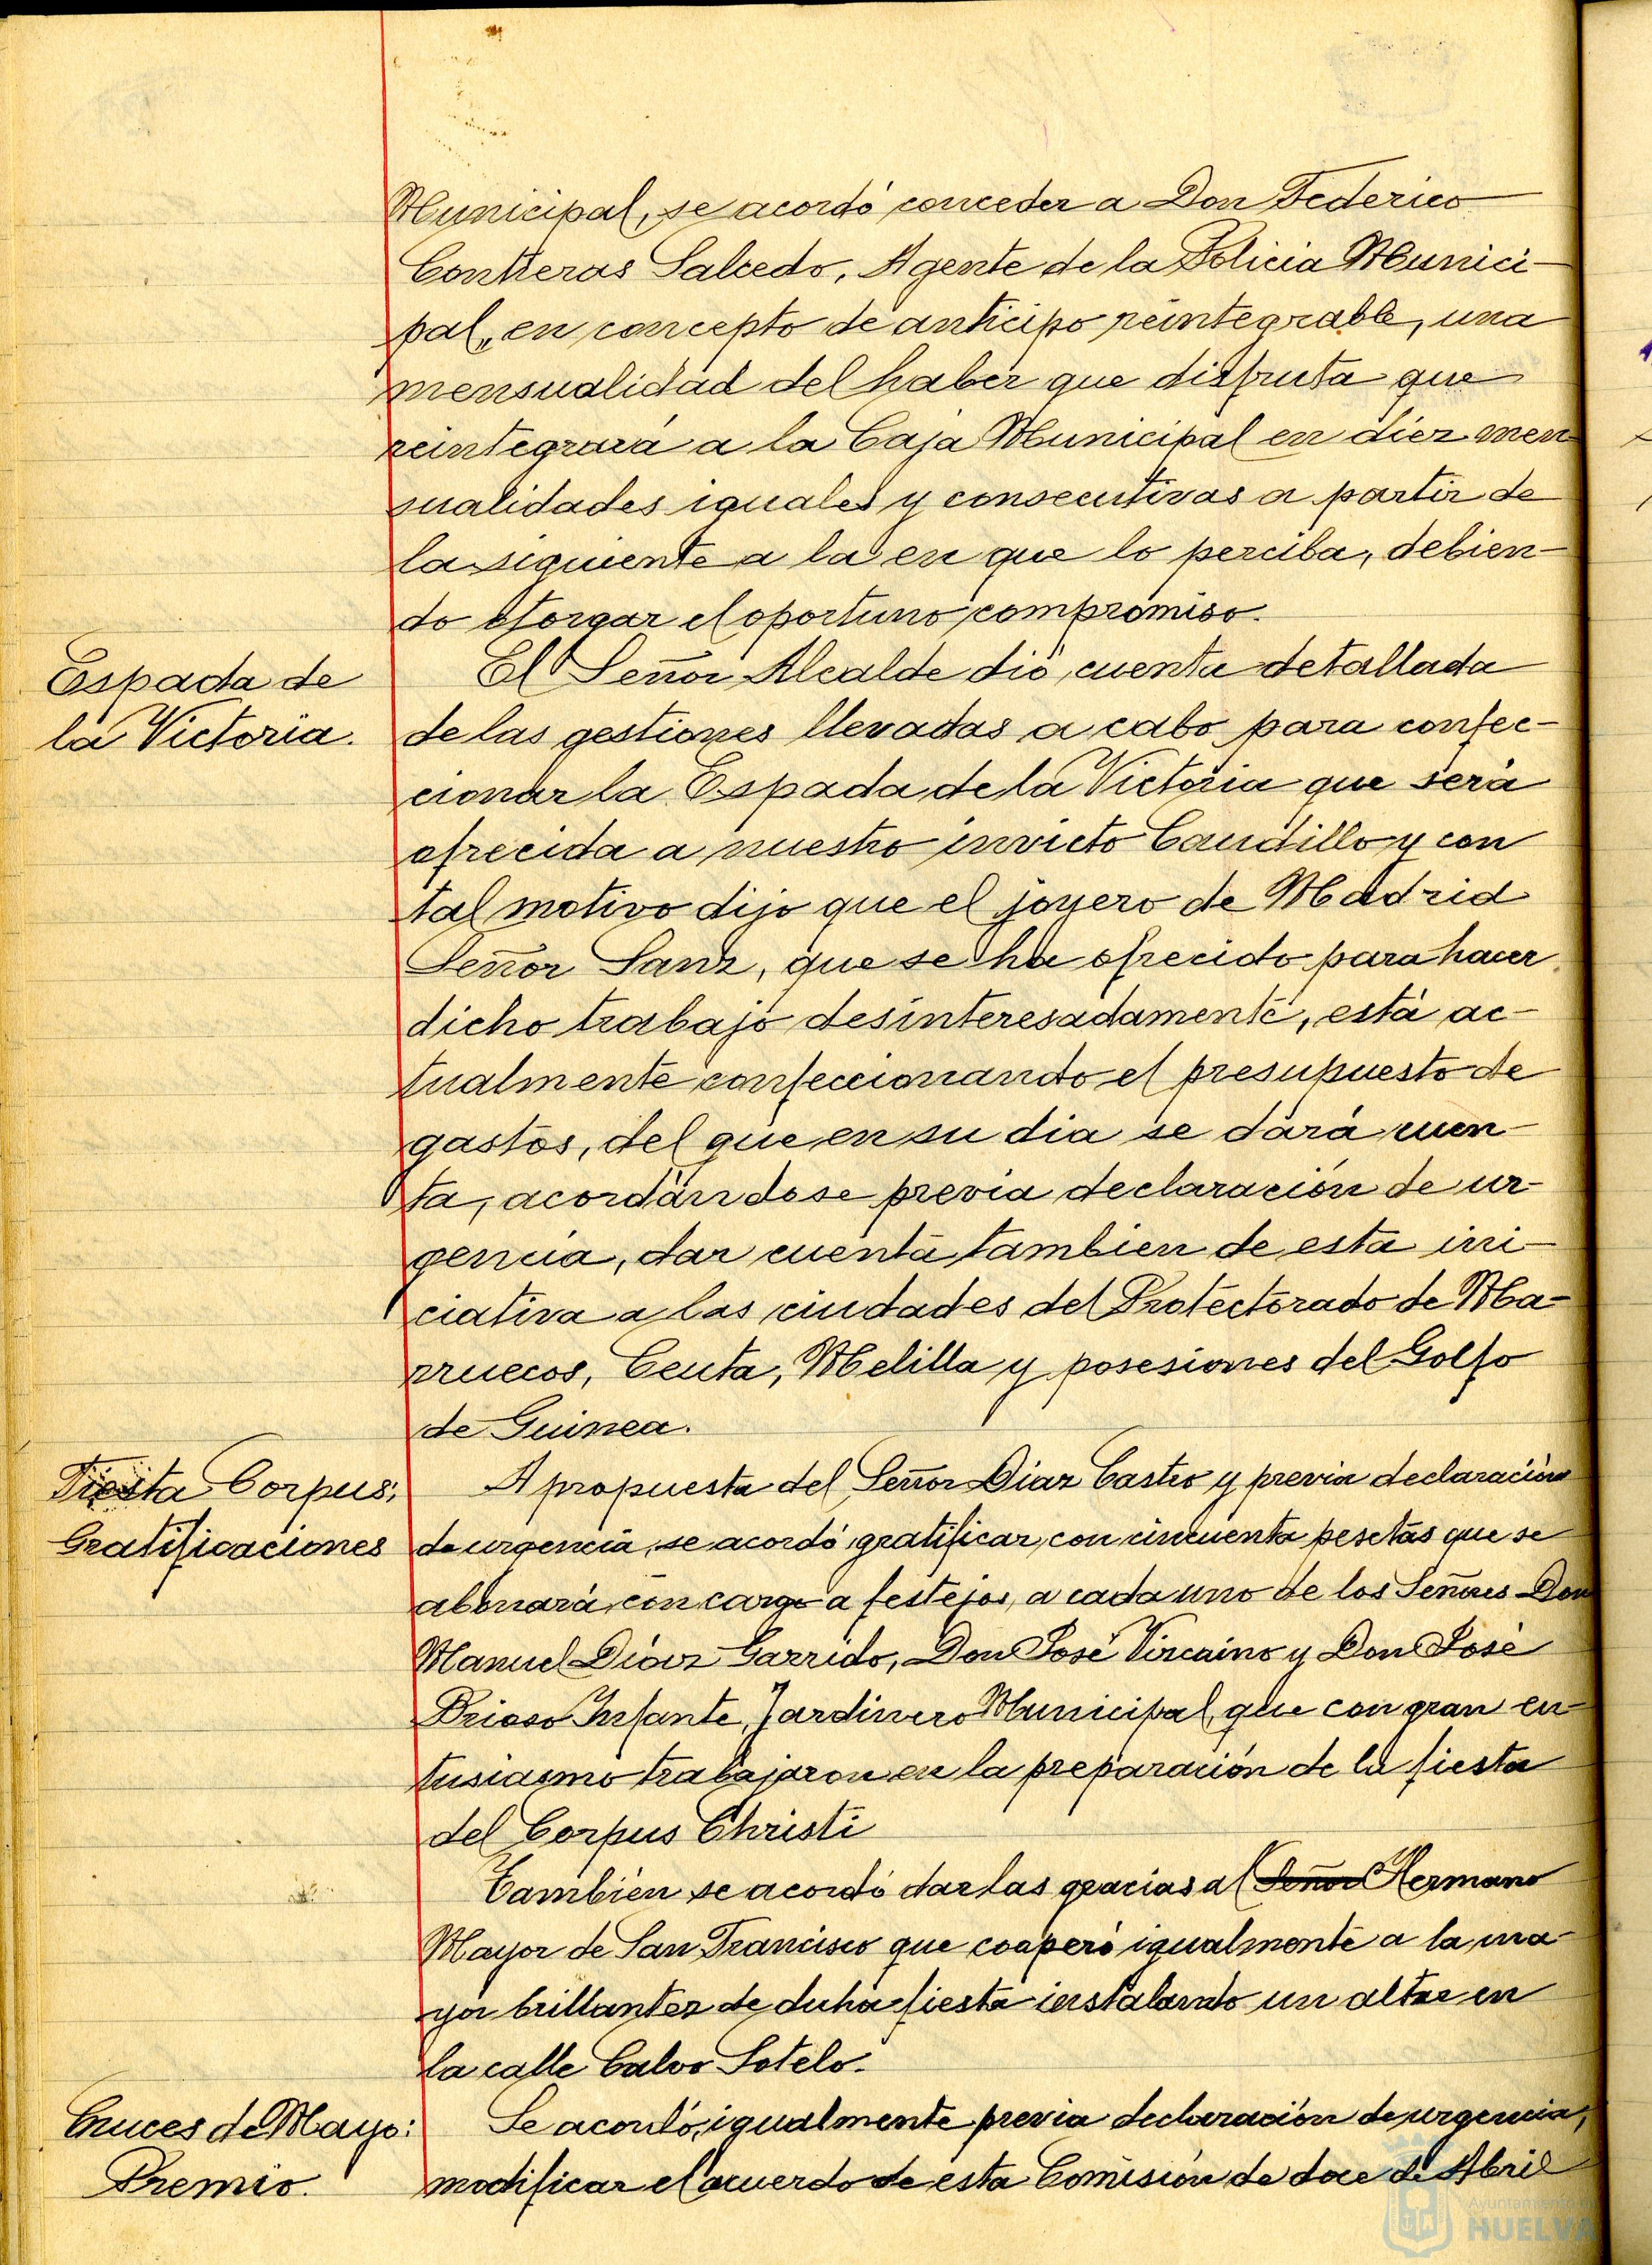 Municipal, se acordó conceder a Don Federico
Contreras Salcedo, Agente de la Policia Munici-
pal, en concepto de anticipo reintegrable, una
mensualidad del haber que disfruta que
reintegrará a la Caja Municipal en diez men
sualidades iguales y consecutivas a partir de
la siguiente a la en que lo perciba, debien-
do otorgar el oportuno compromiso.
Espada de
la Victoria.
El Señor Alcalde dió cuenta detallada
de las gestiones llevadas a cabo para confec-
cionar la Espada de la Victoria que será
ofrecida a nuestro invicto Caudillo y con
tal motivo dijo que el joyero de Madrid
Señor Sanz, que se ha ofrecido para hacer
dicho trabajo desinteresadamente, está ac-
tualmente confeccionando el presupuesto de
gastos, del que en su dia se dará cuen-
ta, acordándose previa declaración de ur-
gencia, dar cuenta tambien de esta ini-
ciativa a las ciudades del Protectorado de Ma-
rruecos, Ceuta, Melilla y posesiones del Golfo
de Guinea.
Fiesta Corpus;
Gratificaciones
A propuesta del Señor Diaz Castro y previa declaración
de urgencia, se acordó gratificar, con cincuenta pesetas que se
abonará con cargo a festejos, a cada uno de los Señores Don
Manuel Diaz Garrido, Don José Vizcaino y Don José
Brioso Infante, Jardinero Municipal, que con gran en-
tusiasmo trabajaron en la preparación de la fiesta
del Corpus Christi
Tambien se acordó dar las gracias al Señor Hermano
Mayor de San Francisco que cooperó igualmente a la ma-
yor brillantez de dicha fiesta instalando un altar en
la calle Calvo Sotelo.
Cruces de Mayo:
Premio.
Se acordó, igualmente previa declaración de urgencia,
modificar el acuerdo de esta Comisión de doce de Abril
Ayuntamiento de
HUELVA